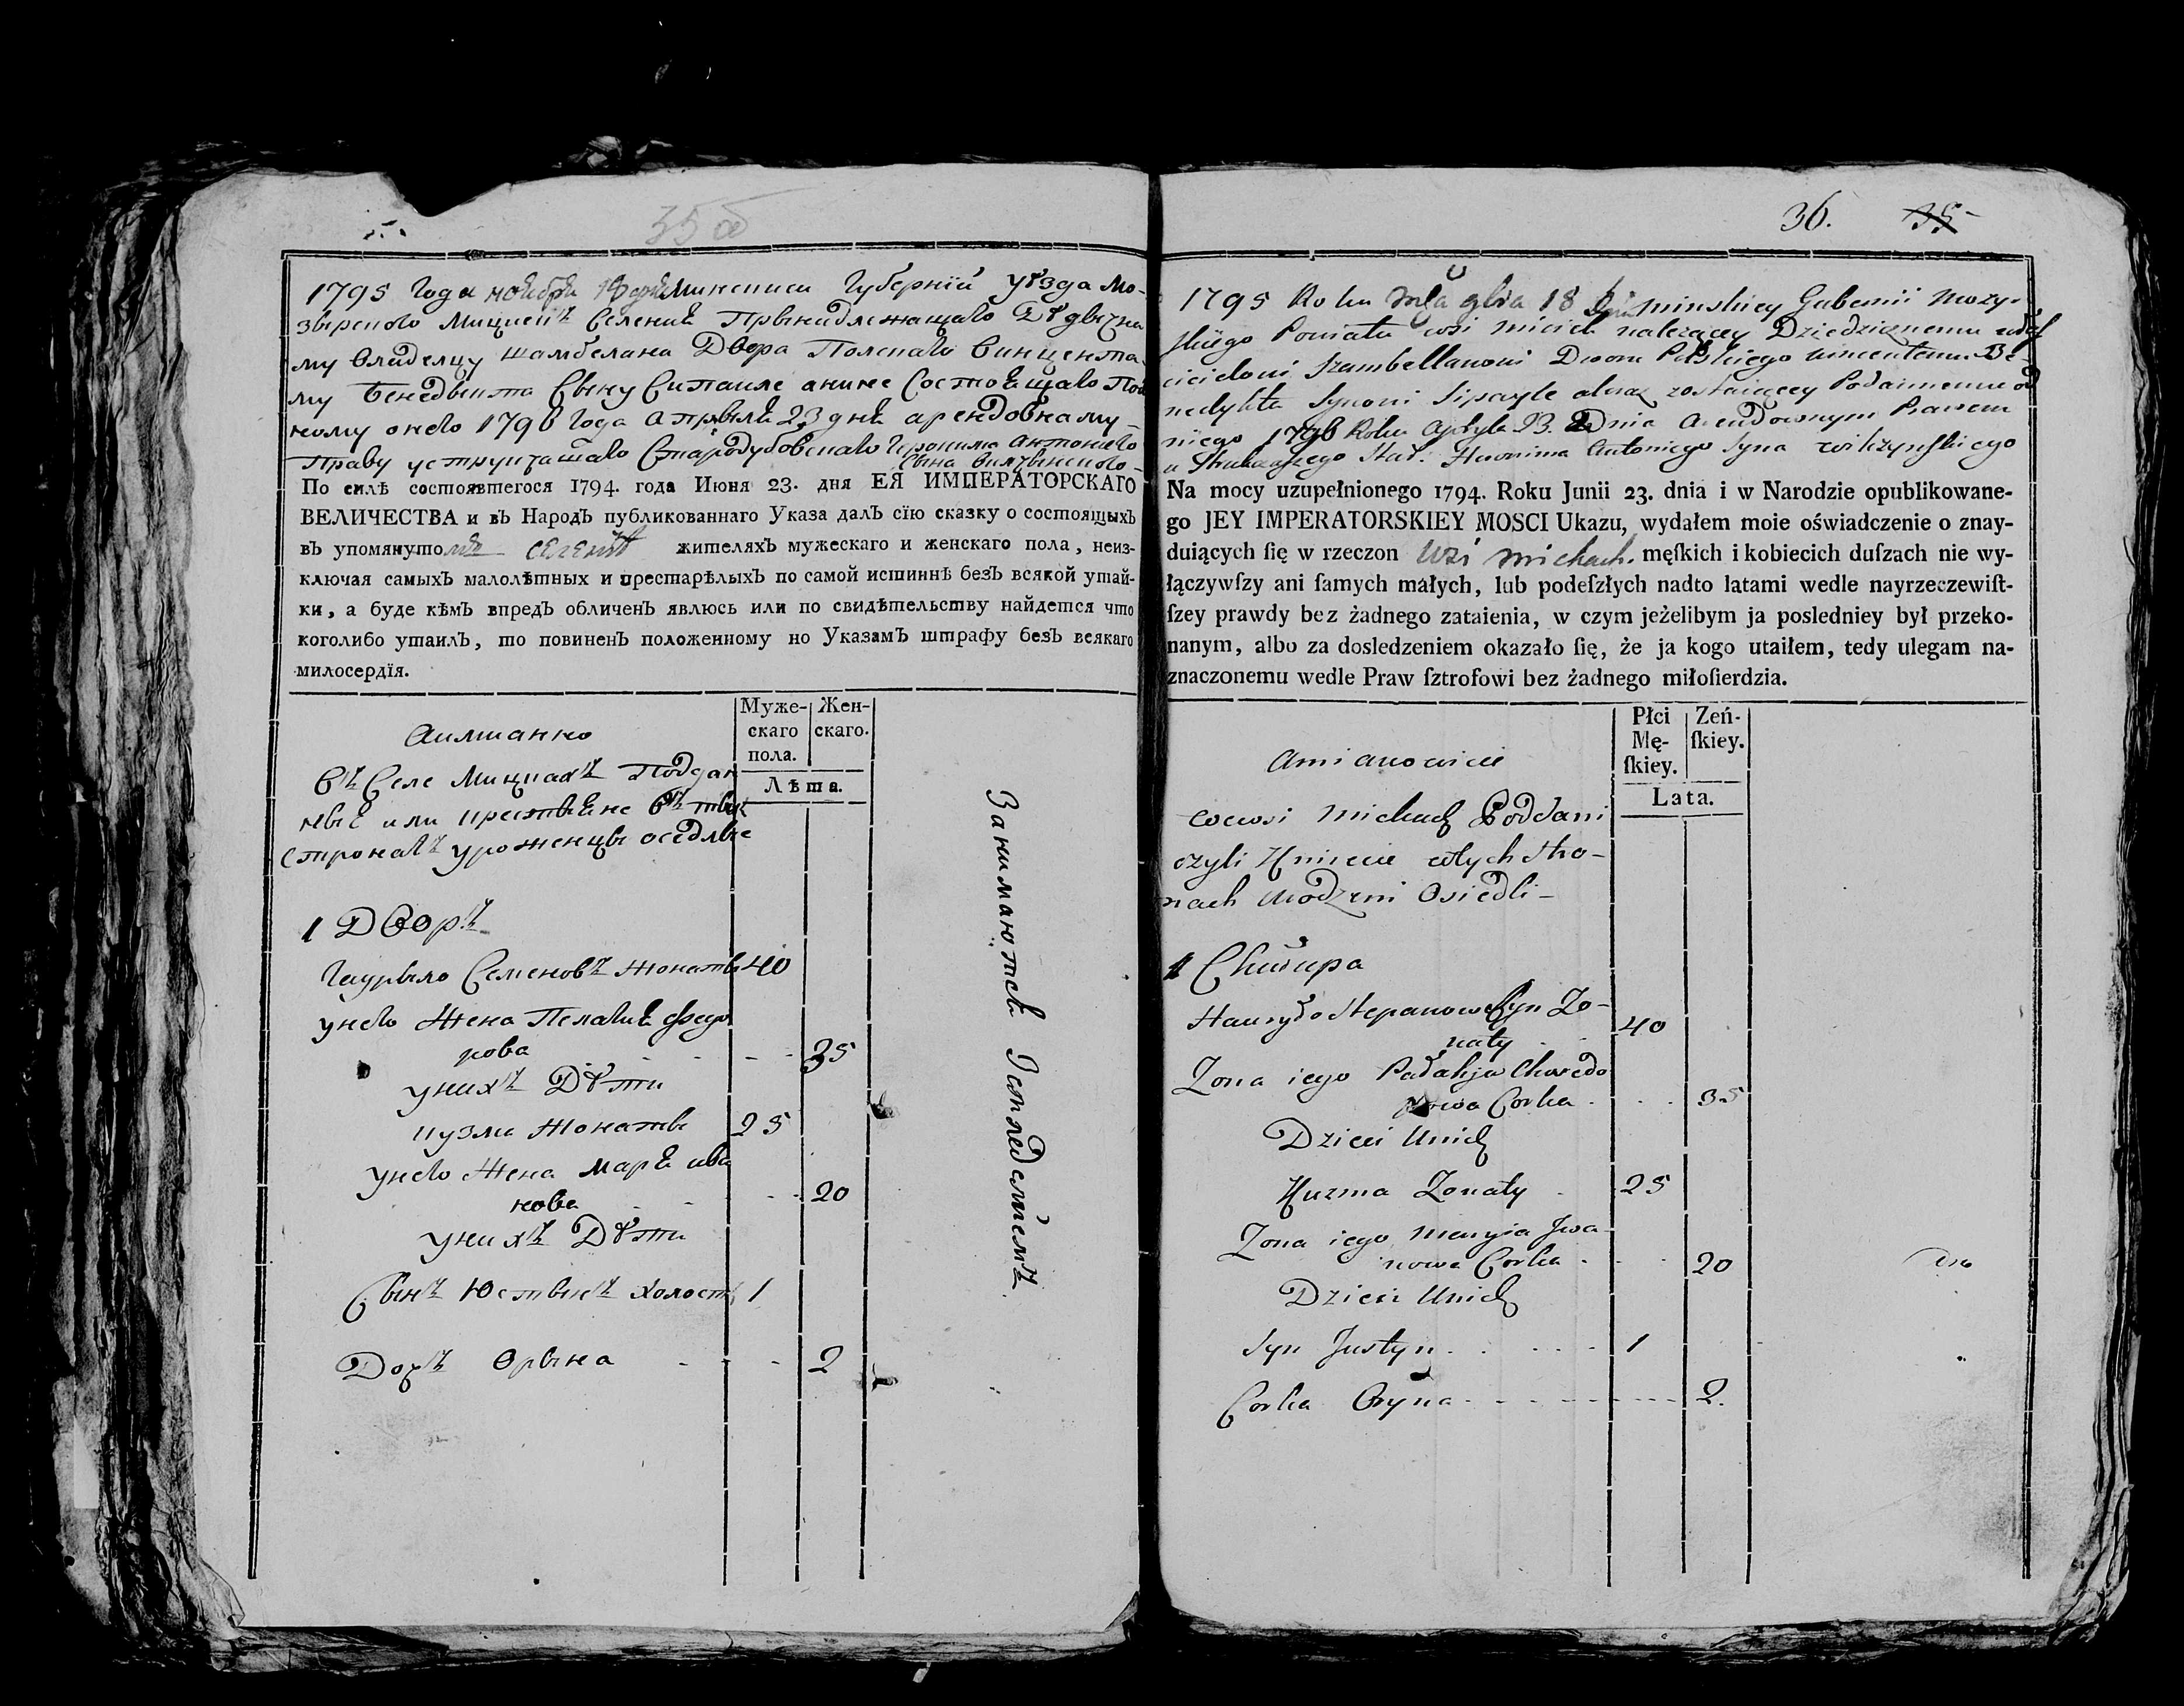 35 об
1795 Года ноября 18 дня Минскои Губерніи уѣзда Мо-
зырского Мицкей Селения Прынадлежащаго Дѣдычна
му Владелцу шамбелана Двора Полскаго Винцента
му Бенедыкта Сыну
ному онего 1796 Года Апрыля 23 дня арендовному
Праву Стародубовскаго Геронима Антонего
Сына
По силѣ состоявшегося 1794. года Июня 23. дня ЕЯ ИМПЕРАТОРСКАГО
ВЕЛИЧЕСТВА и въ Народъ публикованнаго Указа далъ сїю сказку о состоящыхъ
въ упомянутомъ селеніи жителяхъ мужескаго и женскаго пола, неиз-
ключая самыхъ малолѣтныхъ и престарѣлыхъ по самой истиннѣ безъ всякой утай-
ки, а буде кѣмъ впредъ обличенъ явлюсь или по свидѣтельству найдется что
коголибо утаилъ, то повиненъ положенному но Указамъ штрафу безъ всякаго
милосердїя.
Муже-
скаго
пола.
Жен-
скаго.
Лѣта.
Аимянно
Въ Селе Мицках Поддан
ные или крестьяне въ тых
стронах уроженцы оседлые
1 Дворъ
Гаурыло Семеновъ жонаты 40
унего Жена Пелагия Федо
рова 35
уних Дѣти
Кузма Жонаты 25
унего Жена Маря ива
нова 20
уних Дѣти
Сынъ Юстынъ холост 1
Дочъ Орына 2
Занимаются Земледелиемъ
36. 35
1795 Roku 18 Dnia minskiey Gubernii Mozy-
skiego Powiatu wsi należącey Dziedzicznemu
Szambellanowi Dworu Polskiego Wincentemu Be-
nedykta Synowi zostaiącey Podannemu od
niego 1796 Roku Apryla 23. Dnia Arendownym Prawem
Hieronima Antoniego Syna Wilczynskiego
Na mocy uzupełnionego 1794. Roku Junii 23. dnia i w Narodzie opublikowane-
go JEY IMPERATORSKIEY MOSCI Ukazu, wydałem moie oświadczenie o znay-
duiących ſię w rzeczon Wsi Mickach. męſkich i kobiecich duſzach nie wy-
łączywſzy ani ſamych małych, lub podeſzłych nadto latami wedle nayrzeczewiſt-
ſzey prawdy bez żadnego zataienia, w czym jeżelibym ja posledniey był przeko-
nanym, albo za dosledzeniem okazało ſię, że ja kogo utaiłem, tedy ulegam na-
znaczonemu wedle Praw ſztrofowi bez żadnego miłoſierdzia.
Płci
Mę-
ſkiey.
Zeń-
ſkiey.
Lata.
Amianowicie
wewsi Mickach Poddani
czyli Kmiecie wtych stro-
nach urodzeni Osiedli-
1 Chałupa
Hauryło Stepanow Syn Żo-
naty 40
Zona iego Pałahja Chwedo
rowa Corka 35
Dzieci Unich
Kuzma Zonaty 25
Zona iego Maryia Jwa-
nowa Corka 20
Dzieci Unich
Syn Justyn 1
Corka Oryna 2.